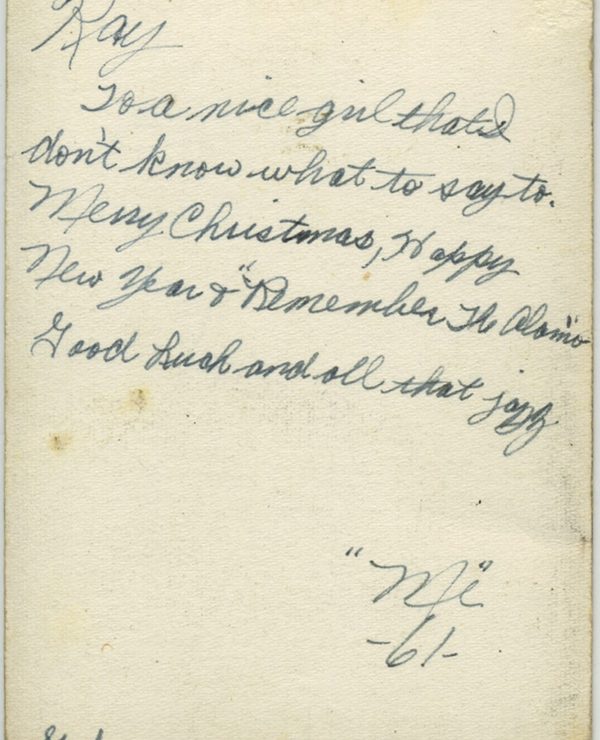 Kay
To a nice girl that I
don't know what to say to.
Merry Christmas, Happy
New Year & "Remember The Alamo"
Good Luck and all that jazz
"Me"
-61-